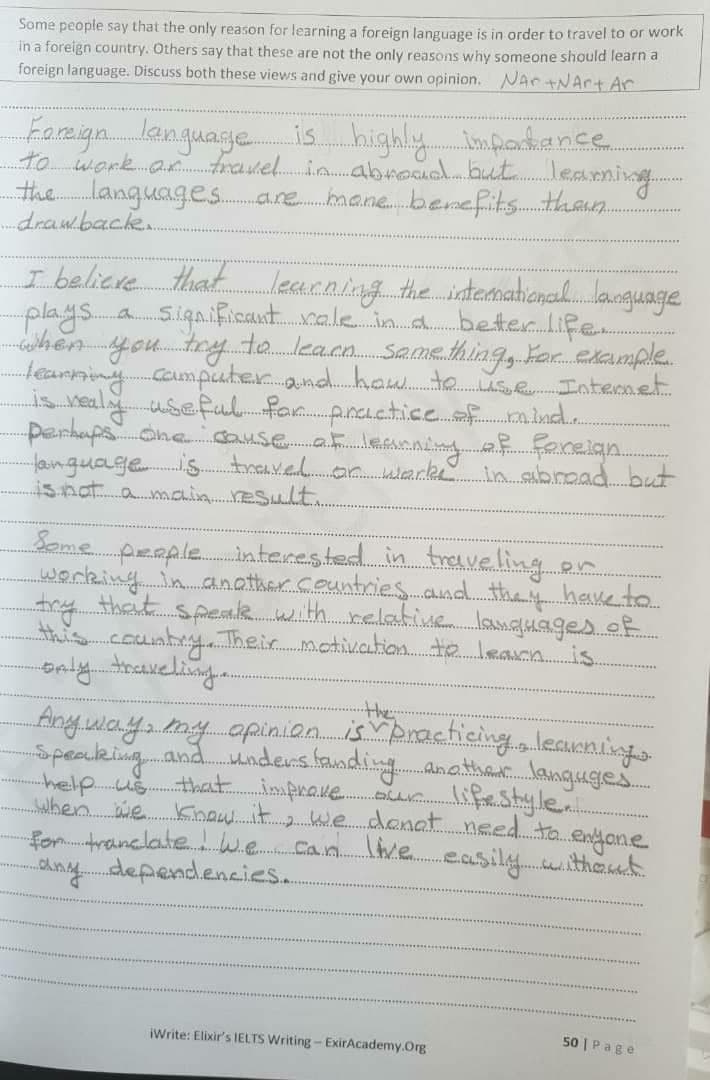 Some people say that the only reason for learning a foreign language is in order to travel to or work
in a foreign country. Others say that these are not the only reasons why someone should learn a
foreign language. Discuss both these views and give your own opinion. NAr + NAr + Ar
Foreign language is highly importance
to work or travel in abroad but learning
the languages are more benefits than
drawback.
I believe that learning the international language
plays a significant role in a better life.
when you try to learn something, For example
learning computer and how to use Internet
is realy useful for practice of mind.
perhaps one cause of learning of foreign
language is travel or works in abroad but
is not a main result.
Some people interested in traveling or
working in another countries and they have to
try that speak with relative languages of
this country. Their motivation to learn is
only traveling.
Any way, my opinion is the practicing, learning,
speaking and understanding another languges
help us that improve our lifestyle.
when we know it, we donot need to enyone
for tranclate! We can live easily without
any dependencies.
iWrite: Elixir's IELTS Writing – ExirAcademy.Org
50 | Page